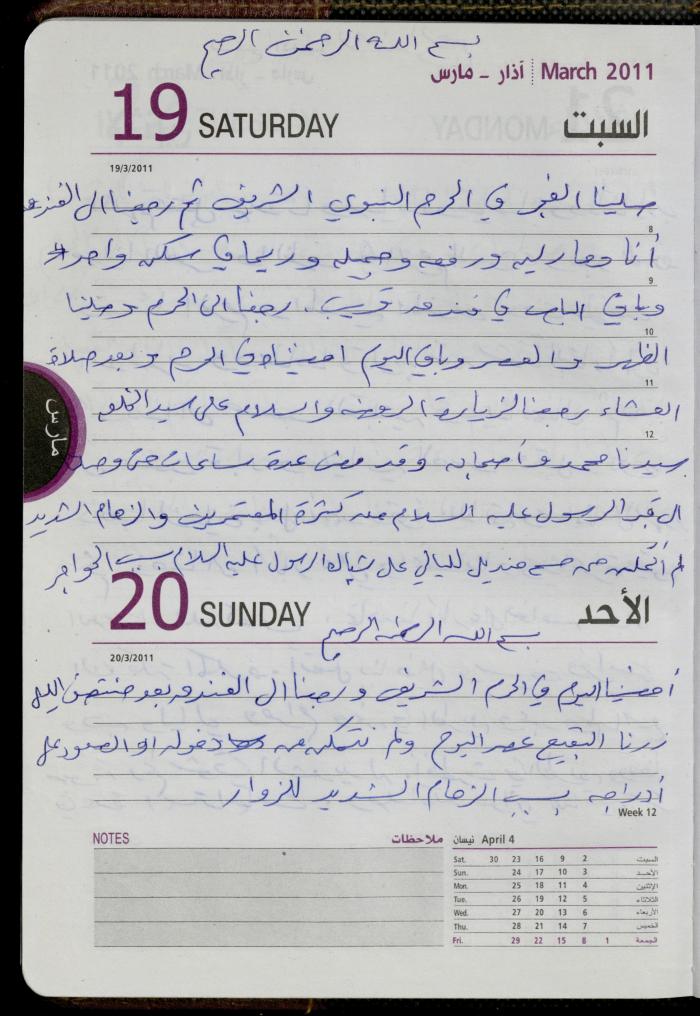 بسم الله الرحمن الرحيم
March 2011 آذار - مارس
19 SATURDAY السبت
19/3/2011
صلينا الفجر في الحرم النبوي الشريف ثم رجعنا الى الفندق
8
أنا و ورفعه وجميله وريما في سكن واحد
9
وباقي الباص في فندق قريب . رجعنا الى الحرم وصلينا
10
الظهر والعصر وباقي اليوم امضيناه في الحرم وبعد صلاة
11
العشاء رجعنا لزيارة الروضه والسلام على سيد الخلق
12
سيدنا محمد وأصحابه وقد مضى عدة ساعات حتى وصلنا
الى قبر الرسول عليه السلام من كثرة المعتمرين والزحام الشديد
لم أتمكن من مسح منديل على شباك الرسول عليه السلام بسبب الحواجز
مارس
20 SUNDAY الأحد
بسم الله الرحمن الرحيم
20/3/2011
أمضينا اليوم في الحرم الشريف ورجعنا الى الفندق بعد منتصف الليل
زرنا البقيع عصر اليوم ولم نتمكن من دخوله او الصعود على
أدراجه بسبب الزحام الشديد للزوار
Week 12
NOTES ملاحظات
April 4 نيسان
Sat. 30 23 16 9 2 السبت
Sun. 24 17 10 3 الأحد
Mon. 25 18 11 4 الإثنين
Tue. 26 19 12 5 الثلاثاء
Wed. 27 20 13 6 الأربعاء
Thu. 28 21 14 7 الخميس
Fri. 29 22 15 8 1 الجمعة